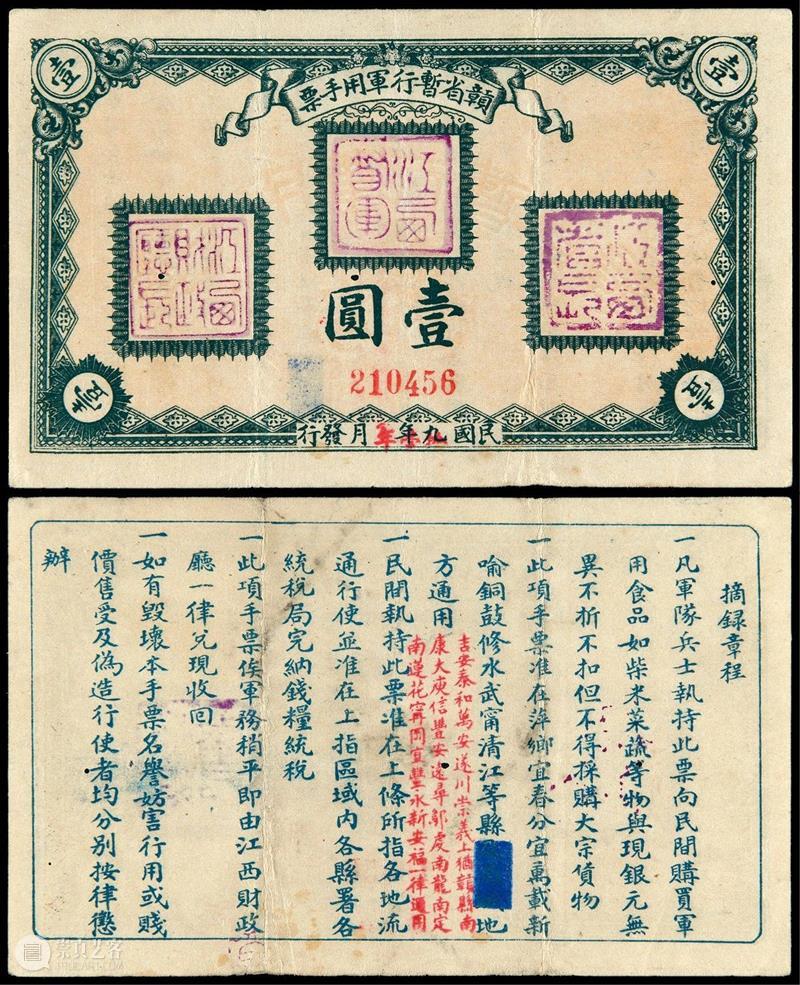 壹
壹
贛省暫行軍用手票
江西督軍
江西財政廳長
壹圓
210456
壹
壹
民國九年月發行
摘錄章程
一凡軍隊兵士執持此票向民間購買軍
用食品如柴米菜蔬等物與現銀元無
異不折不扣但不得採購大宗貨物
一此項手票准在萍鄉宜春分宜萬載新
喻銅鼓修水武甯清江等縣地
方通用
吉安泰和萬安遂川崇義上猶贛縣南
康大庾信豐安遠尋鄔虔南龍南定
南蓮花甯岡宜豐永新安福一律通用
一民間執持此票准在上條所指各地流
通行使並准在上指區域內各縣署各
統稅局完納錢糧統稅
一此項手票俟軍務稍平即由江西財政
廳一律兌現收回
一如有毀壞本手票名譽妨害行用或賤
價售受及偽造行使者均分別按律懲
辦
崇真艺客